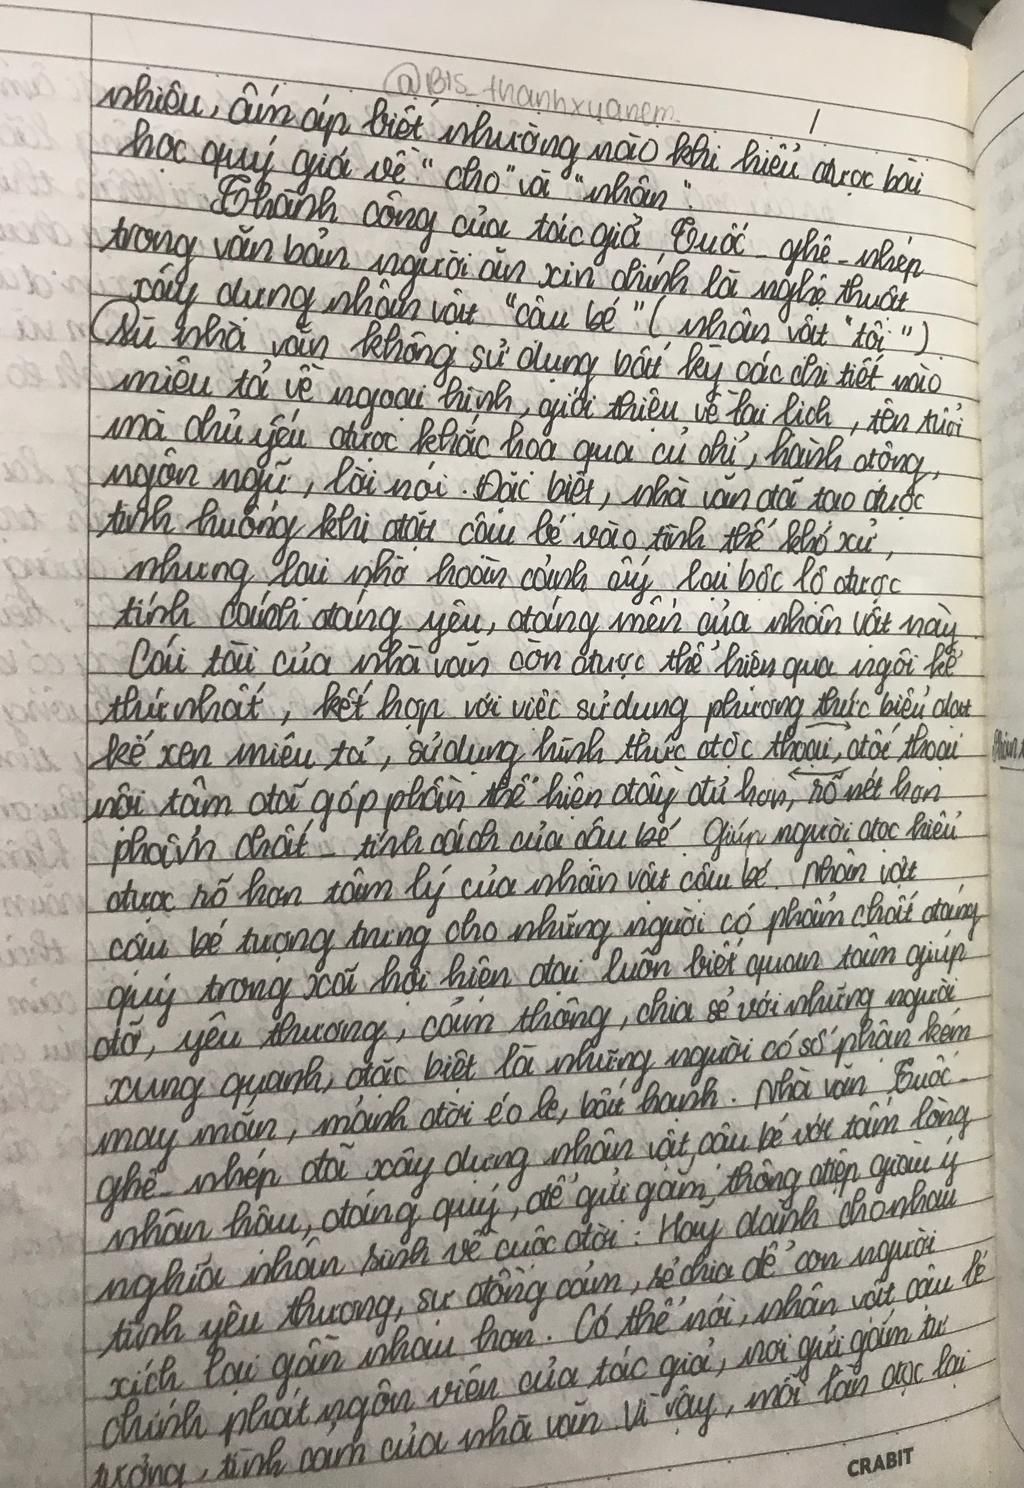 @BTS_thanhxuanem.
1
nhiêu, ấm áp biết nhường nào khi hiểu được bài
học quý giá về "cho" và "nhận".
Thành công của tác giả Tuốc-ghê-nhép
trong văn bản người ăn xin chính là nghệ thuật
xây dựng nhân vật "cậu bé" (nhân vật "tôi").
Dù nhà văn không sử dụng bất kỳ các chi tiết nào
miêu tả về ngoại hình, giới thiệu về lai lịch, tên tuổi
mà chủ yếu được khắc hoạ qua cử chỉ, hành động,
ngôn ngữ, lời nói. Đặc biệt, nhà văn đã tạo được
tình huống khi đặt cậu bé vào tình thế khó xử,
nhưng lại nhờ hoàn cảnh ấy lại bộc lộ được
tính cách đáng yêu, đáng mến của nhân vật này.
Cái tài của nhà văn còn được thể hiện qua ngôi kể
thứ nhất, kết hợp với việc sử dụng phương thức biểu đạt
kể xen miêu tả, sử dụng hình thức độc thoại, đối thoại
nội tâm đã góp phần thể hiện đầy đủ hơn, rõ nét hơn
phẩm chất - tính cách của cậu bé. Giúp người đọc hiểu
được rõ hơn tâm lý của nhân vật cậu bé. Nhân vật
cậu bé tượng trưng cho những người có phẩm chất đáng
quý trong xã hội hiện đại luôn biết quan tâm giúp
đỡ, yêu thương, cảm thông, chia sẻ với những người
xung quanh, đặc biệt là những người có số phận kém
may mắn, mảnh đời éo le, bất hạnh. Nhà văn Tuốc-
ghê-nhép đã xây dựng nhân vật cậu bé với tấm lòng
nhân hậu, đáng quý, để gửi gắm thông điệp giàu ý
nghĩa nhân sinh về cuộc đời: Hãy dành cho nhau
tình yêu thương, sự đồng cảm, sẻ chia để con người
xích lại gần nhau hơn. Có thể nói, nhân vật cậu bé
chính phát ngôn viên của tác giả, nơi gửi gắm tư
tưởng, tình cảm của nhà văn. Vì vậy, mỗi lần đọc lại
CRABIT